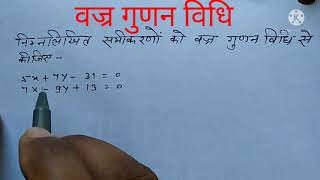 वज्र गुणन विधि
निम्नलिखित समीकरणों को वज्र गुणन विधि से
कीजिए -
5x + 7y - 31 = 0
7x - 9y + 13 = 0